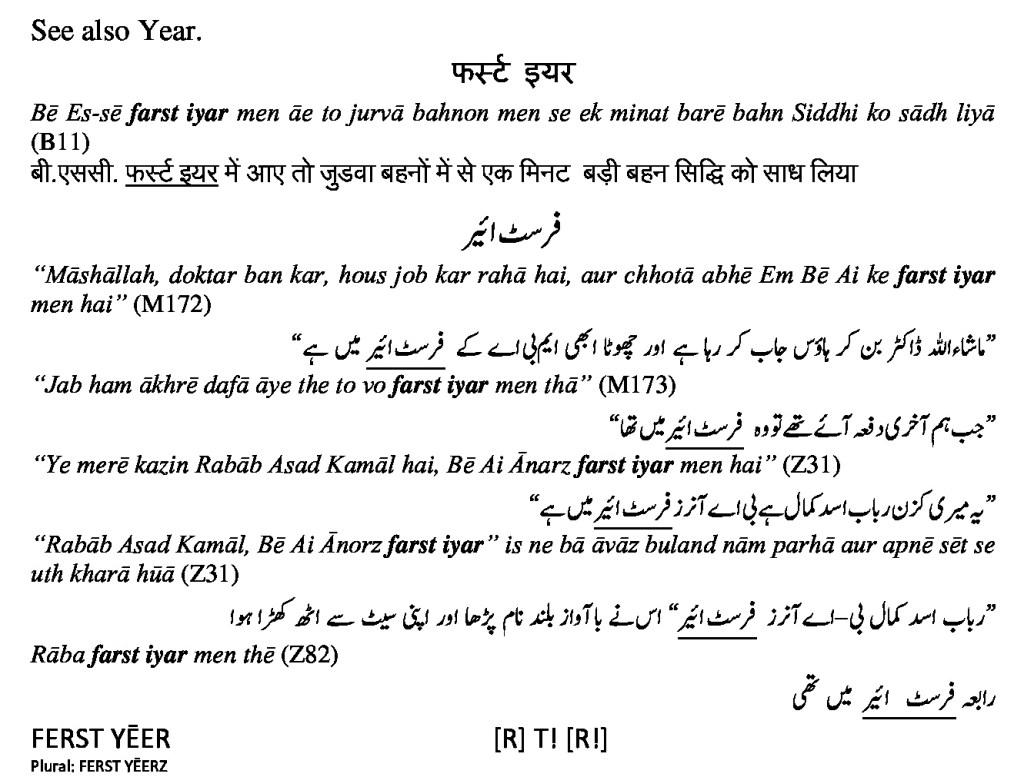 See also Year.
फर्स्ट इयर
Bē Es-sē farst iyar men āe to jurvā bahnon men se ek minat barē bahn Siddhi ko sādh liyā
(B11)
बी.एससी. फर्स्ट इयर में आए तो जुडवा बहनों में से एक मिनट बड़ी बहन सिद्धि को साध लिया
فرسٹ ائیر
“Māshāllah, doktar ban kar, hous job kar rahā hai, aur chhotā abhē Em Bē Ai ke farst iyar
men hai” (M172)
”ماشاءاللہ ڈاکٹر بن کر ہاؤس جاب کر رہا ہے اور چھوٹا ابھی ایم بی اے کے فرسٹ ائیر میں ہے“
“Jab ham ākhrē dafā āye the to vo farst iyar men thā” (M173)
”جب ہم آخری دفعہ آئے تھے تو وہ فرسٹ ائیر میں تھا“
“Ye merē kazin Rabāb Asad Kamāl hai, Bē Ai Ānarz farst iyar men hai” (Z31)
”یہ میری کزن رباب اسد کمال ہے بی اے آنرز فرسٹ ائیر میں ہے“
“Rabāb Asad Kamāl, Bē Ai Ānorz farst iyar” is ne bā āvāz buland nām parhā aur apnē sēt se
uth kharā hūā (Z31)
”رباب اسد کمال بی–اے آنرز فرسٹ ائیر“ اس نے با آواز بلند نام پڑھا اور اپنی سیٹ سے اٹھ کھڑا ہوا
Rāba farst iyar men thē (Z82)
رابعہ فرسٹ ائیر میں تھی
FERST YĒER [R] T! [R!]
Plural: FERST YĒERZ